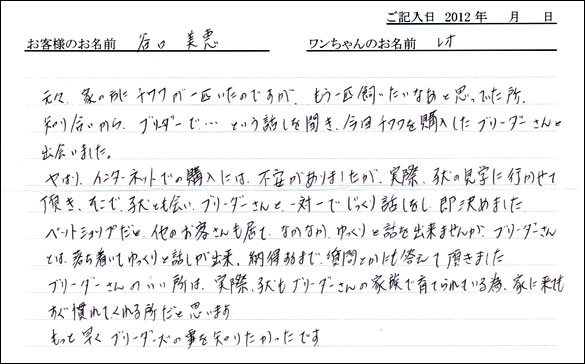 ご記入日 2012年 月 日
お客様のお名前 谷口 美恵 ワンちゃんのお名前 レオ
元々、家の中に チワワが一匹いたのですが、もう一匹飼いたいなあと思っていた所、
知り合いから、ブリーダーで…という話しを聞き、今回チワワを購入したブリーダーさんと
出会いました。
やはり、インターネットでの購入には、不安がありましたが、実際、子犬の見学に行かせて
頂き、そこで、子犬とも会い、ブリーダーさんと、一対一でじっくり話しをし、即決めました
ペットショップだと、他のお客さんも居て、なかなか、ゆっくりと話を出来ませんが、ブリーダーさん
とは、落ち着いてゆっくりと話しが出来、納得するまで、質問とかにも答えて頂きました
ブリーダーさんのいい所は、実際、子犬もブリーダーさんの家族で育てられている為、家に来ても
すぐ慣れてくれる所だと思います
もっと早くブリーダーズの事を知りたかったです